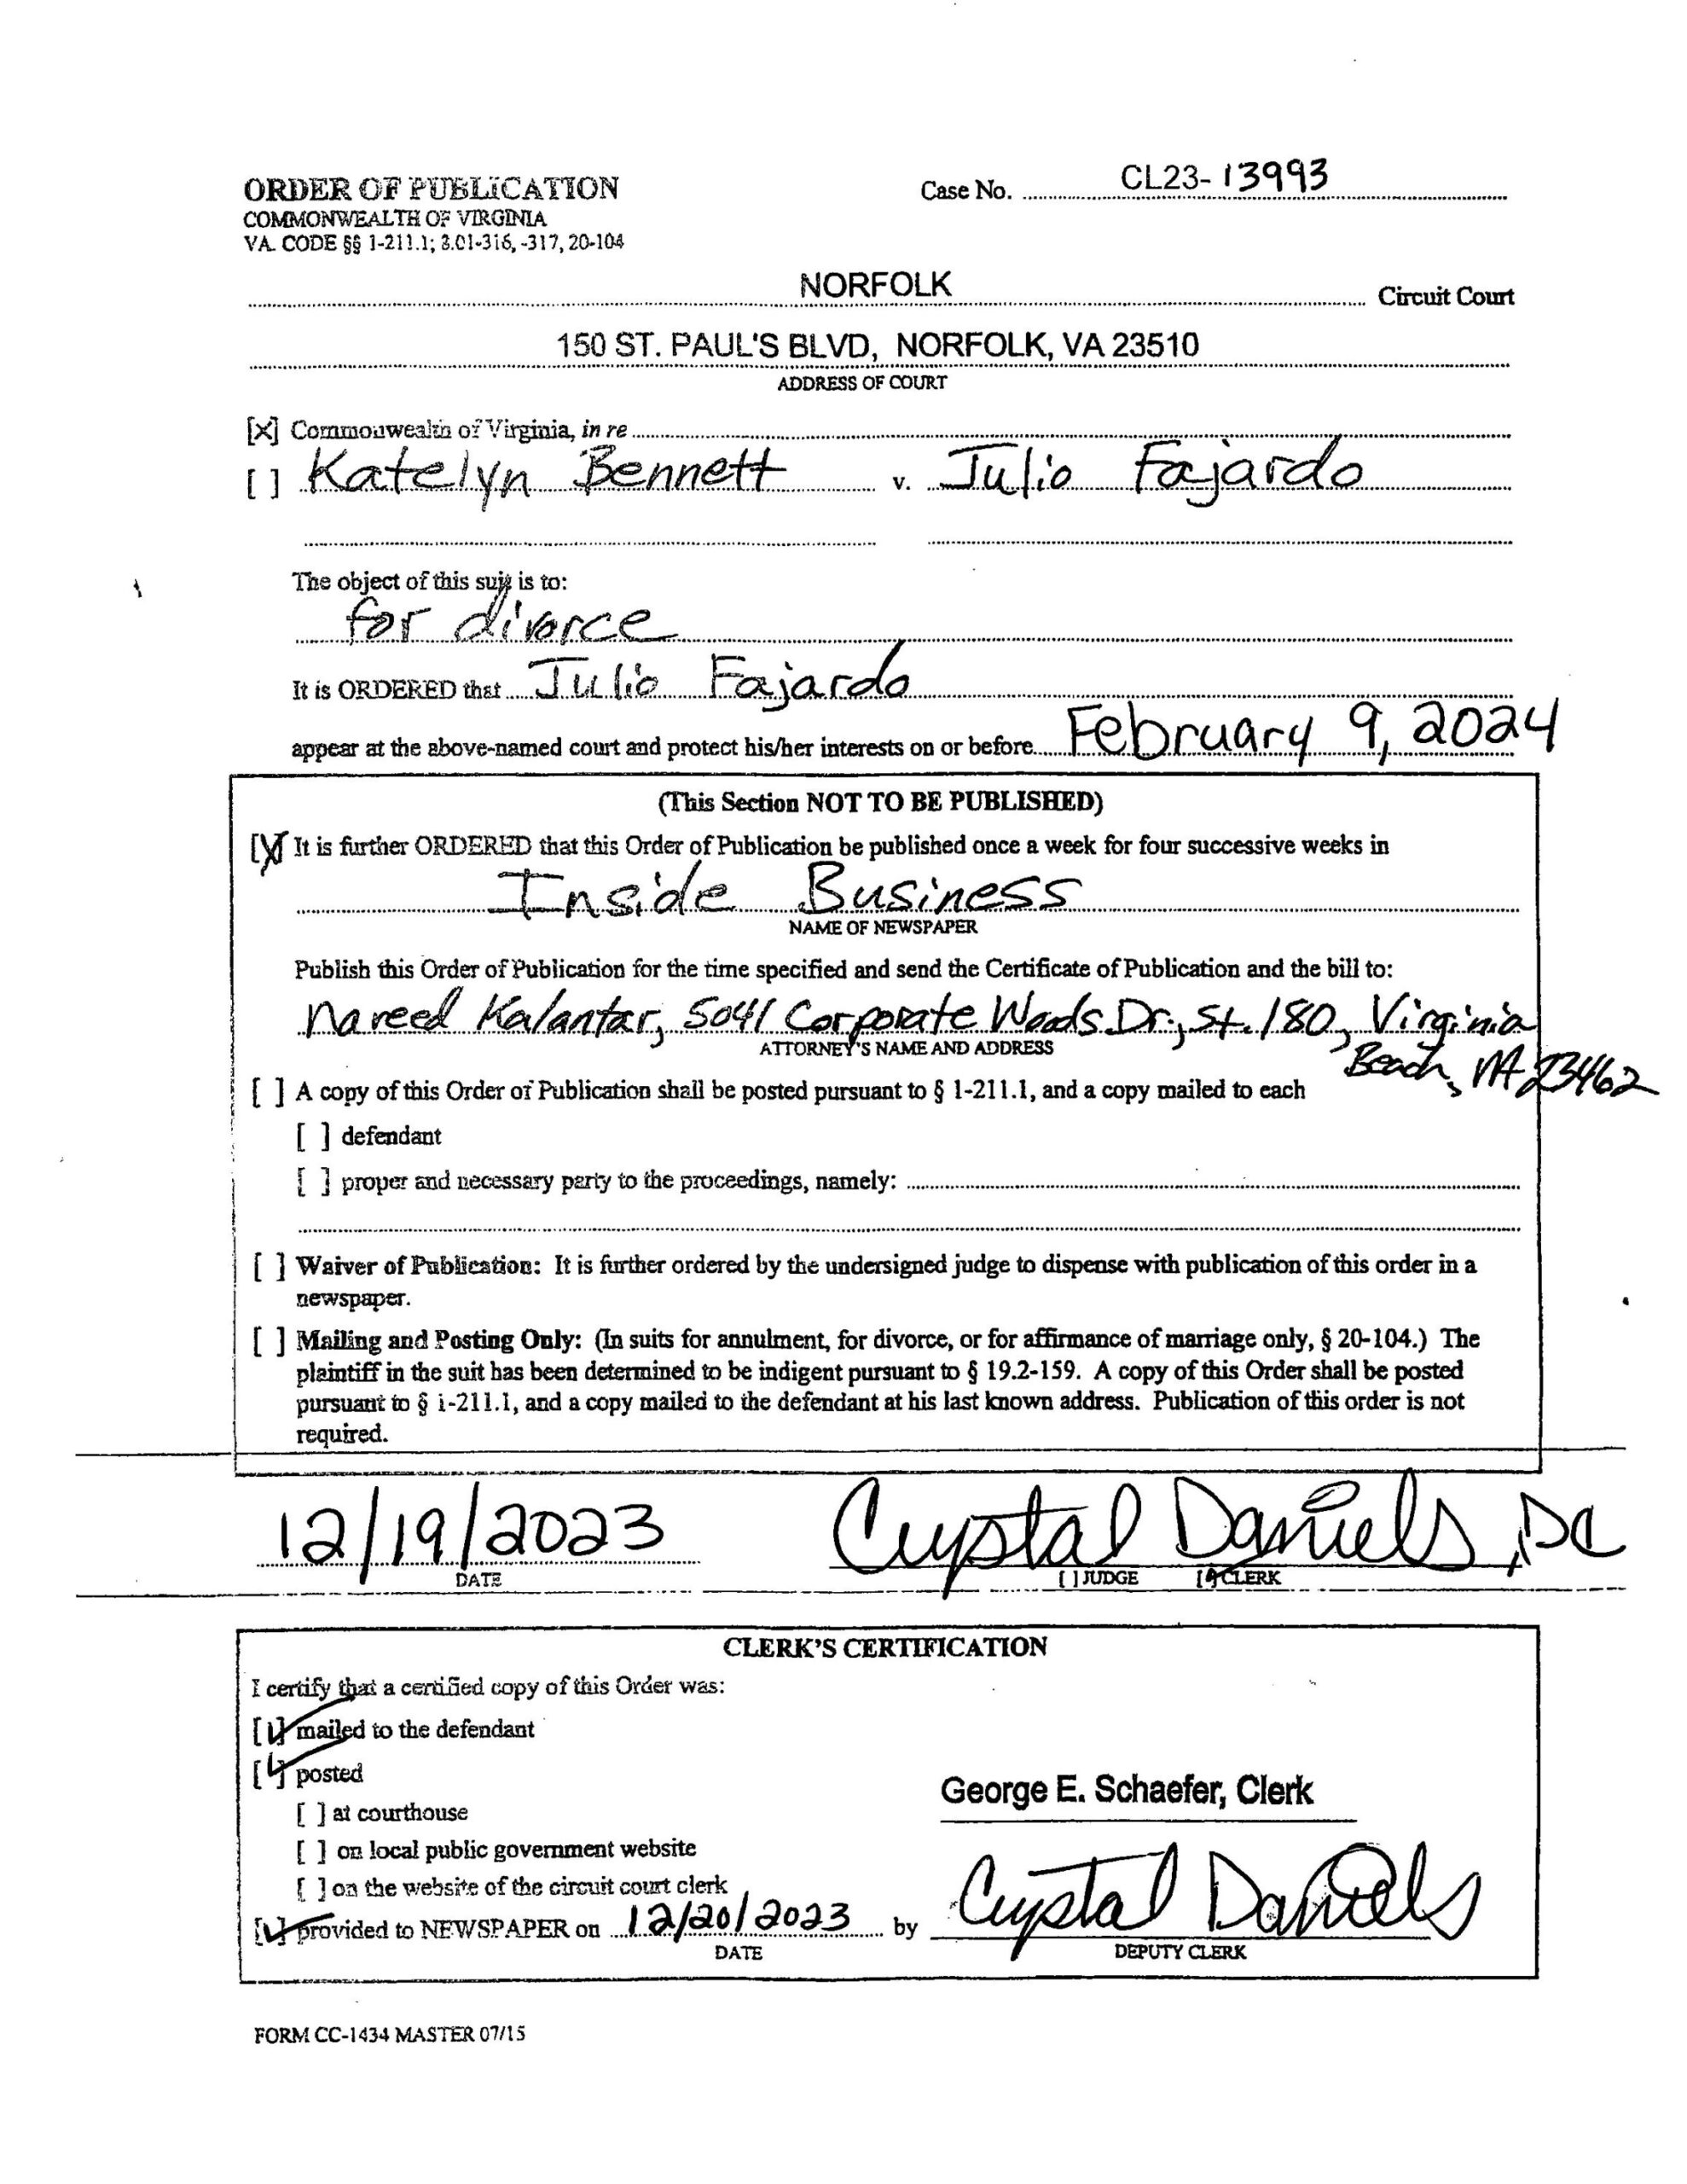 ORDER OF PUBLICATION
COMMONWEALTH OF VIRGINIA
VA. CODE §§ 1-211.1; 8.01-316, -317, 20-104
Case No. CL23-13993
NORFOLK Circuit Court
150 ST. PAUL'S BLVD, NORFOLK, VA 23510
ADDRESS OF COURT
[X] Commonwealth of Virginia, in re
[ ] Katelyn Bennett v. Julio Fajardo
The object of this suit is to:
for divorce
It is ORDERED that Julio Fajardo
appear at the above-named court and protect his/her interests on or before February 9, 2024
(This Section NOT TO BE PUBLISHED)
[X] It is further ORDERED that this Order of Publication be published once a week for four successive weeks in
Inside Business
NAME OF NEWSPAPER
Publish this Order of Publication for the time specified and send the Certificate of Publication and the bill to:
Nareed Kalantar, 5041 Corporate Woods Dr., St. 180, Virginia
Beach, VA 23462
ATTORNEY'S NAME AND ADDRESS
[ ] A copy of this Order of Publication shall be posted pursuant to § 1-211.1, and a copy mailed to each
[ ] defendant
[ ] proper and necessary party to the proceedings, namely:
[ ] Waiver of Publication: It is further ordered by the undersigned judge to dispense with publication of this order in a
newspaper.
[ ] Mailing and Posting Only: (In suits for annulment, for divorce, or for affirmance of marriage only, § 20-104.) The
plaintiff in the suit has been determined to be indigent pursuant to § 19.2-159. A copy of this Order shall be posted
pursuant to § 1-211.1, and a copy mailed to the defendant at his last known address. Publication of this order is not
required.
12/19/2023 Crystal Daniels, DC
DATE [ ] JUDGE [✓] CLERK
CLERK'S CERTIFICATION
I certify that a certified copy of this Order was:
[✓] mailed to the defendant
[✓] posted
[ ] at courthouse
[ ] on local public government website
[ ] on the website of the circuit court clerk
George E. Schaefer, Clerk
[✓] provided to NEWSPAPER on 12/20/2023 by Crystal Daniels
DATE DEPUTY CLERK
FORM CC-1434 MASTER 07/15